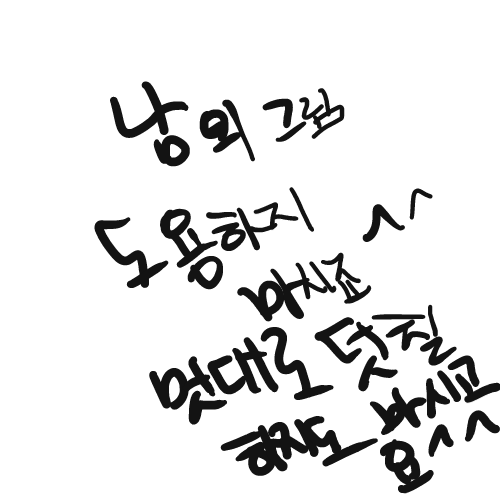 낭의 그림
도용하지 ^^
마시죠
멋대로 덧질
하지도 마시고
요^^